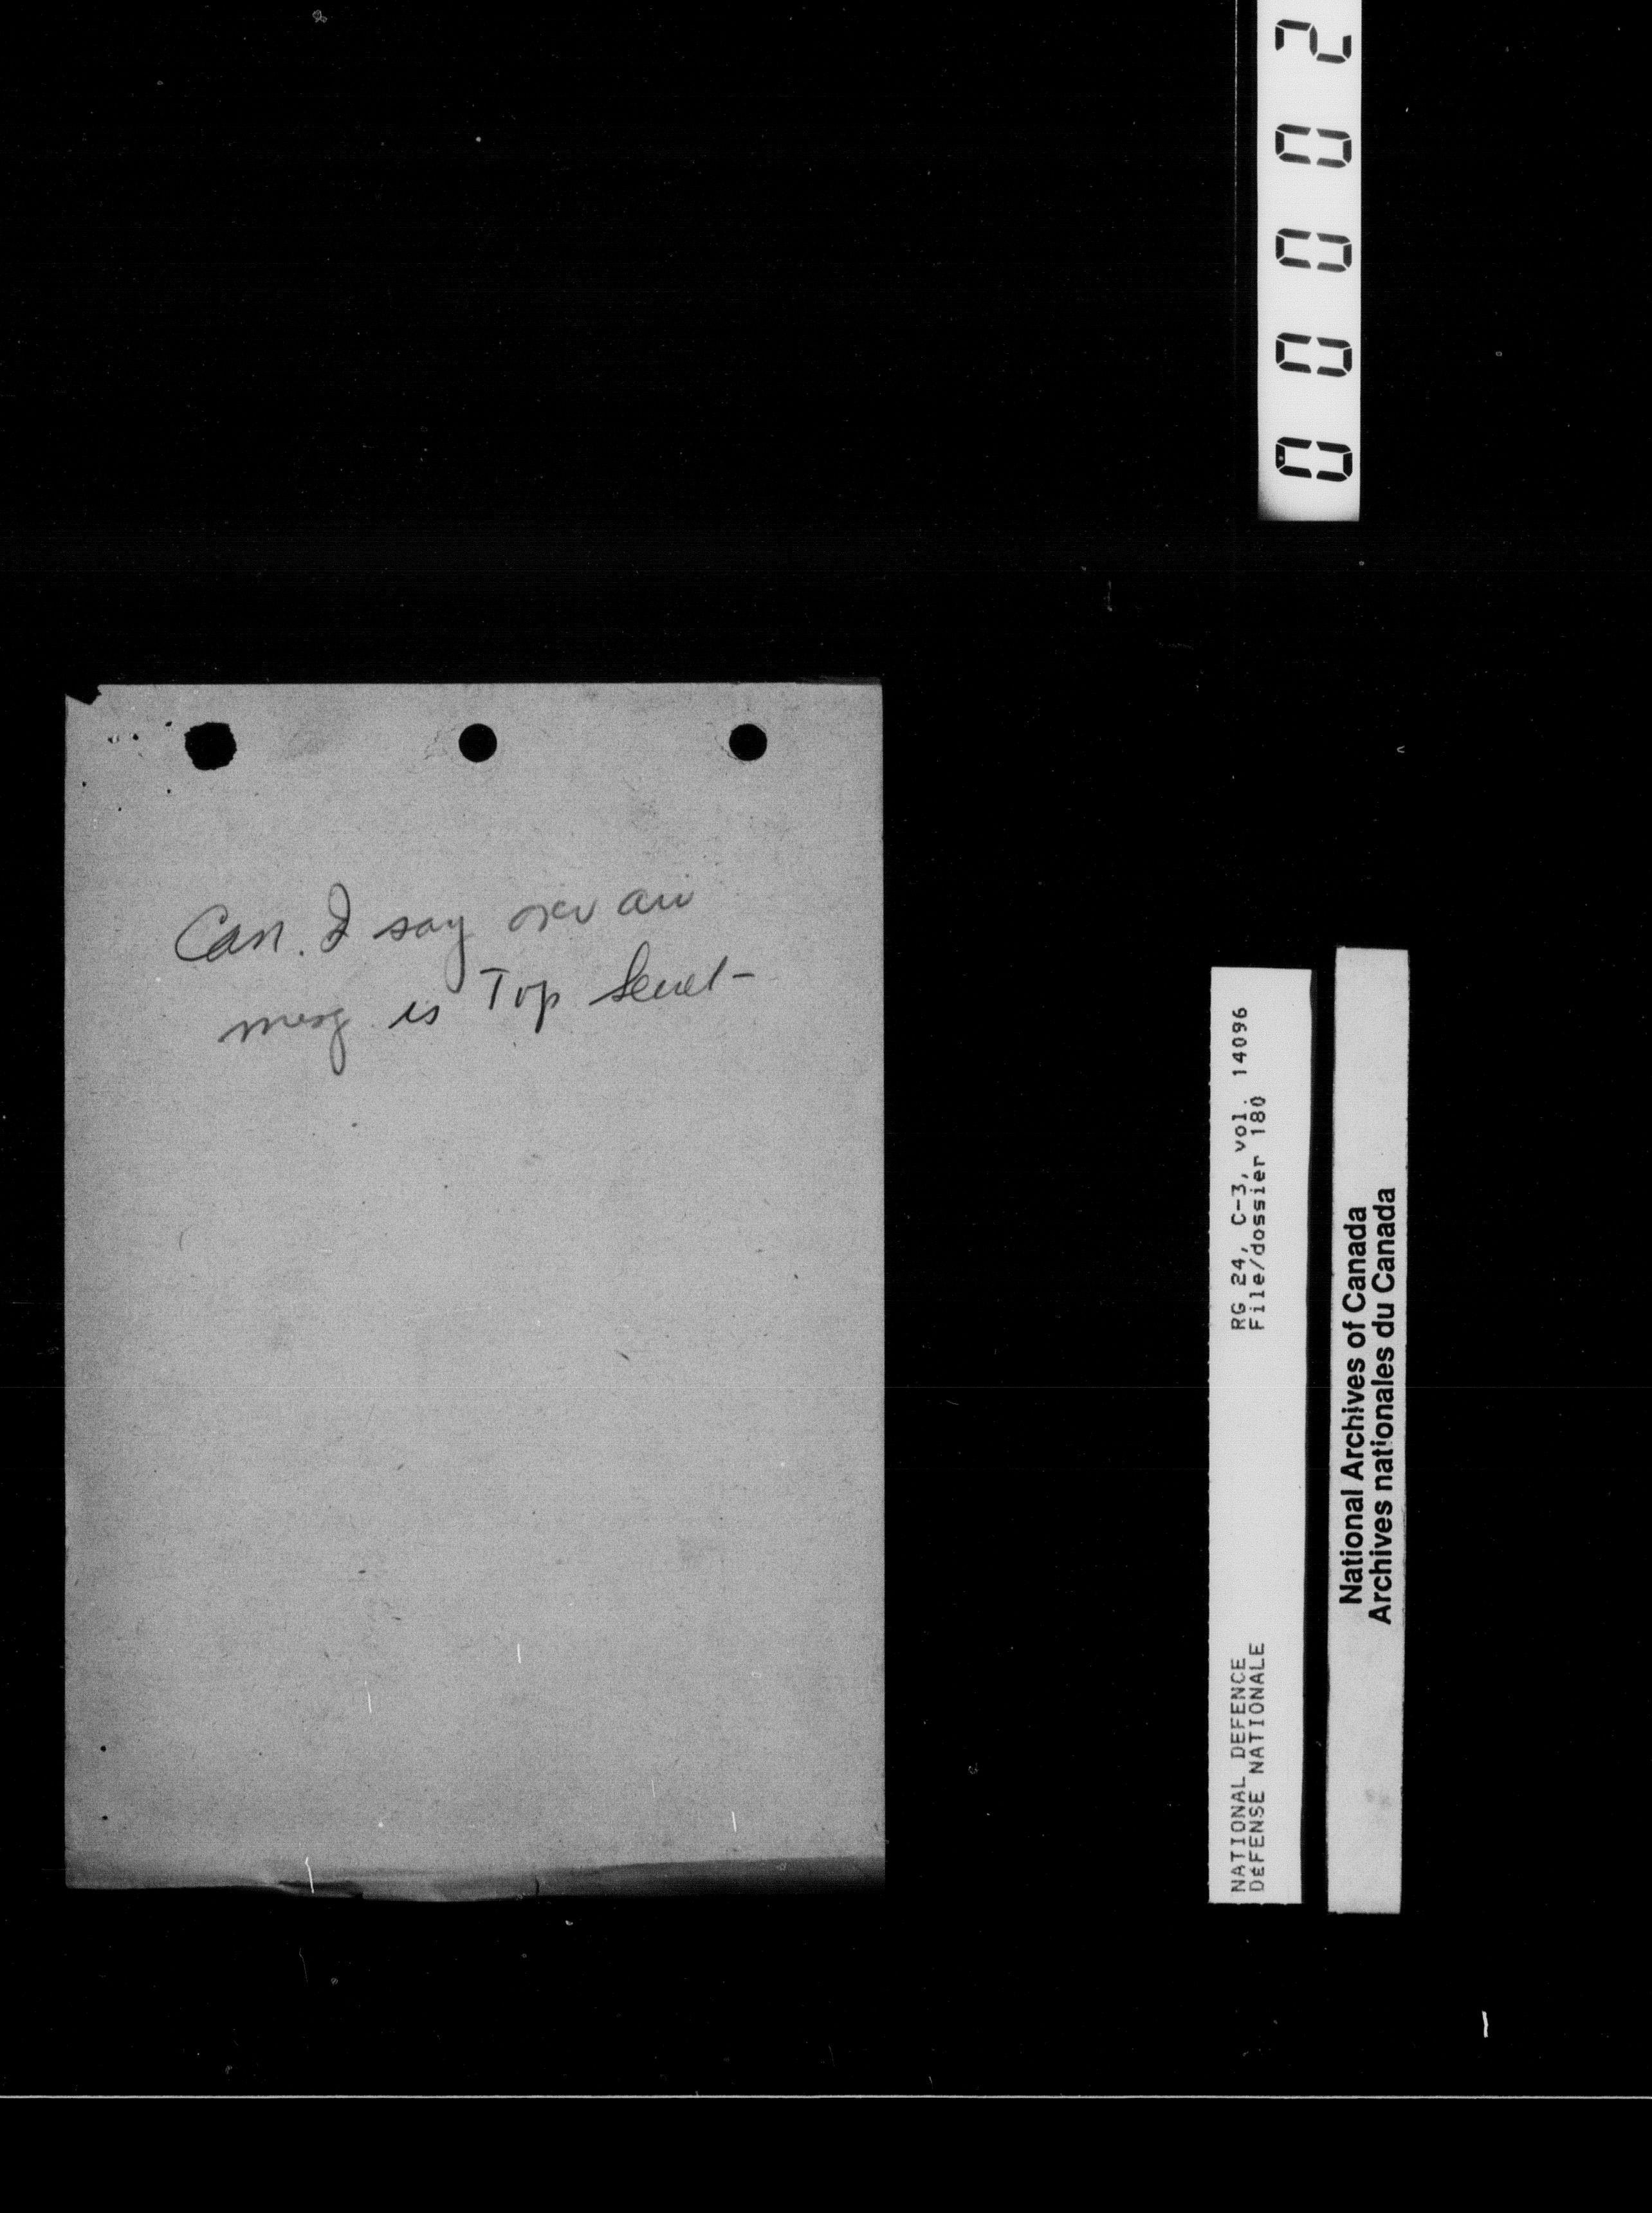 Can. I say over air
mesg is Top Secret
00002
RG 24, C-3, vol. 14096
File/dossier 180
NATIONAL DEFENCE
DÉFENSE NATIONALE
National Archives of Canada
Archives nationales du Canada